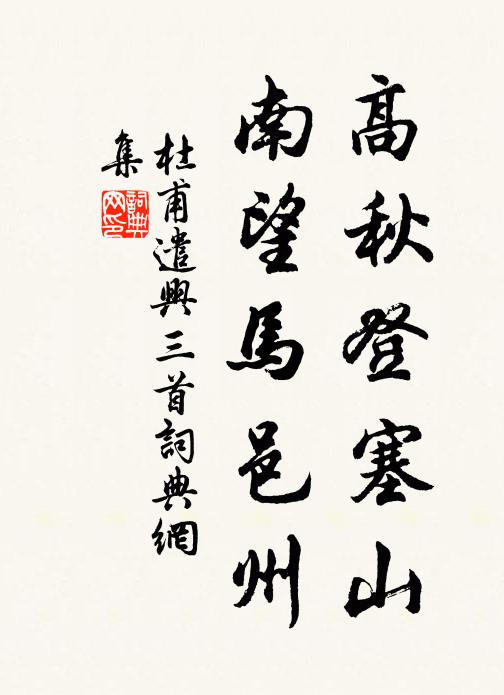 高秋登塞山
南望馬邑州
杜甫遣興三首詞典網
集
詞典
网印